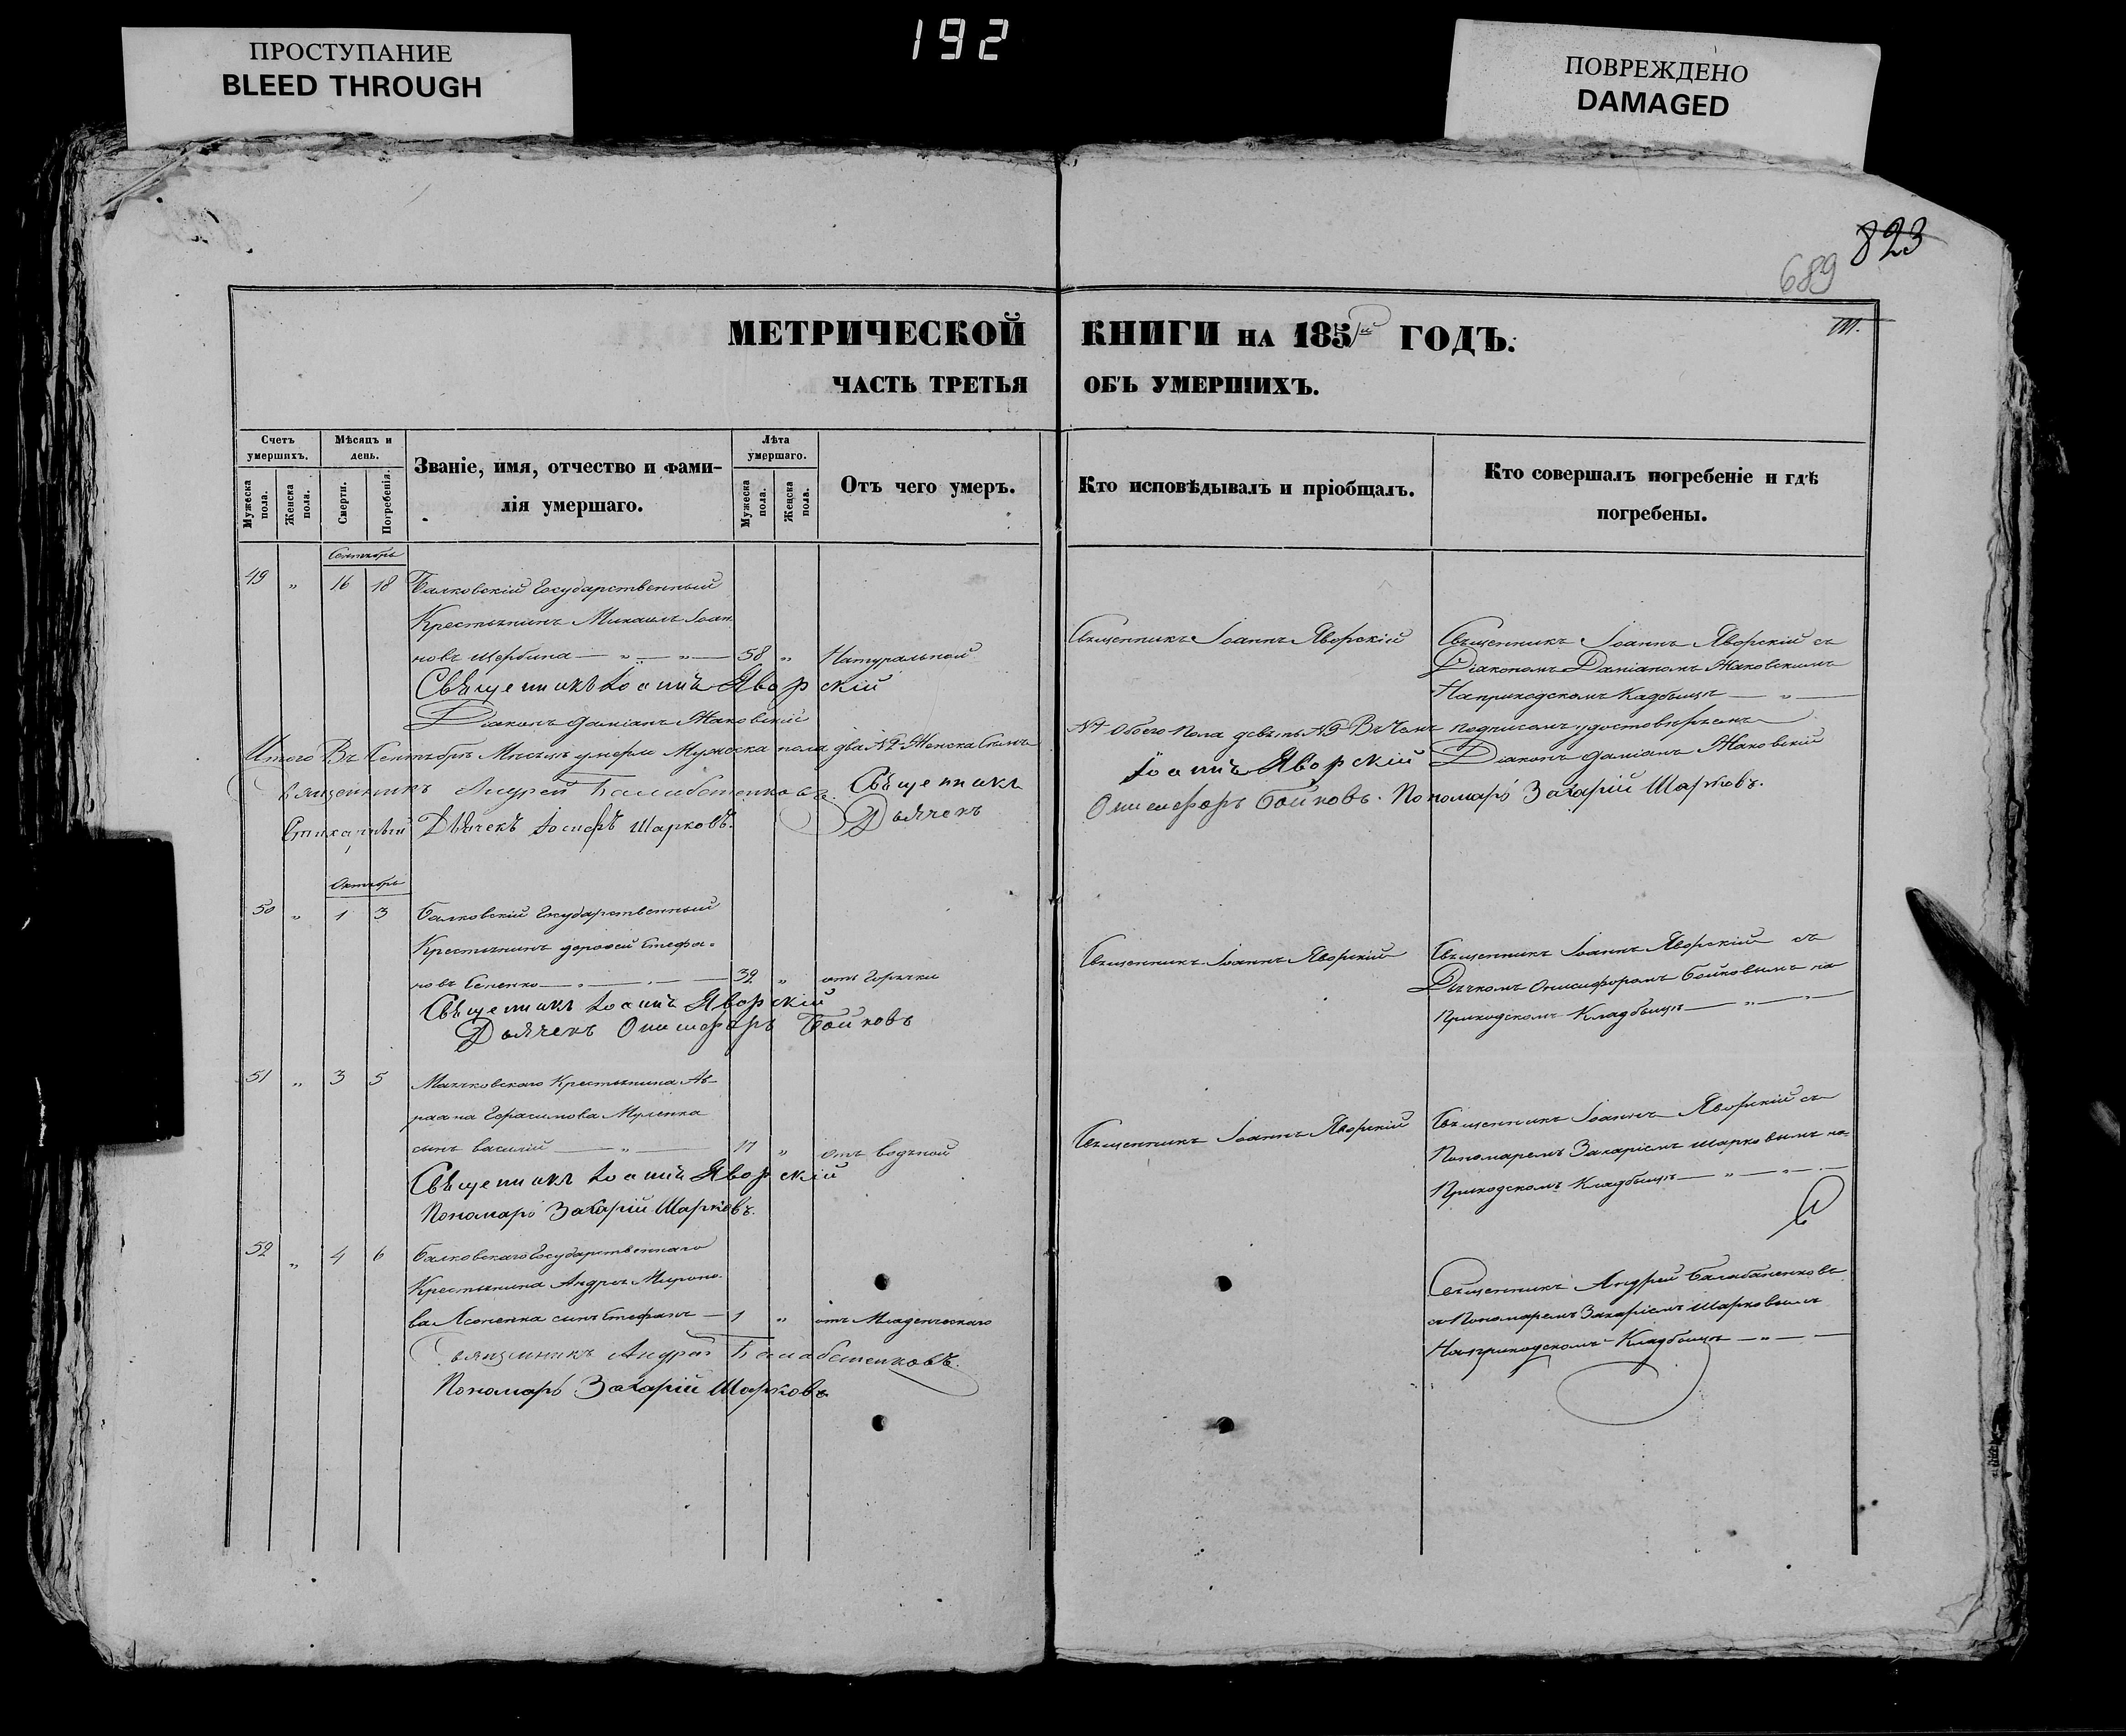 ПРОСТУПАНИЕ
BLEED THROUGH
192
ПОВРЕЖДЕНО
DAMAGED
823
689
МЕТРИЧЕСКОЙ КНИГИ НА 1851й ГОДЪ.
ЧАСТЬ ТРЕТЬЯ ОБЪ УМЕРШИХЪ.
Счетъ умершихъ.
Мужеска пола.
Женска пола.
Мѣсяцъ и день.
Смерти.
Погребенія.
Званіе, имя, отчество и фами-
лія умершаго.
Лѣта умершаго.
Мужеска пола.
Женска пола.
Отъ чего умеръ.
Кто исповѣдывалъ и пріобщалъ.
Кто совершалъ погребеніе и гдѣ
погребены.
Сентябрь
49 " 16 18 Балковскій Государственный
Крестьянинъ Михаилъ Іоан
новъ Щербина — " — " — 58 " Натуральной
Священникъ Іоаннъ Яворскій
Священникъ Іоаннъ Яворскій съ
Діакономъ Даміаномъ Жаковскимъ
На приходскомъ Кладбищѣ — " —
Священникъ Іоаннъ Яворскій
Діаконъ Даміанъ Жаковскій
Итого Въ Сентябрѣ Мѣсяцѣ умерло Мужеска пола два №2 Женска Семь
№7 Обоего Пола девять №9 Въ Чемъ подписомъ удостовѣряемъ
Священникъ Андрей Балабаненковъ.
Священникъ Іоаннъ Яворскій Діаконъ Даміанъ Жаковскій
Стихарный Дьячекъ Іосифъ Шарковъ.
Дьячекъ Онисифоръ Бойковъ. Пономарь Захарій Шарковъ.
Октябрь
50 " 1 3 Балковскій Государственный
Крестьянинъ Дорофей Стефа-
новъ Сененко — " — 39 " отъ Горячки
Священникъ Іоаннъ Яворскій
Священникъ Іоаннъ Яворскій съ
Дьячкомъ Онисифоромъ Бойковымъ на
приходскомъ Кладбищѣ — " — " —
Священникъ Іоаннъ Яворскій
Дьячекъ Онисифоръ Бойковъ
51 " 3 5 Крестьянина Ав-
раама Герасимова
сынъ Василій — " — 17 " отъ водяной
Священникъ Іоаннъ Яворскій
Священникъ Іоаннъ Яворскій съ
Пономаремъ Захаріемъ Шарковымъ на
Приходскомъ Кладбищѣ — " — " —
Священникъ Іоаннъ Яворскій
Пономарь Захарій Шарковъ.
52 " 4 6 Балковскаго Государственнаго
Крестьянина Андрея Мироно-
ва сынъ Стефанъ — 1 " отъ Младенческаго
Священникъ Андрей Балабаненковъ
съ Пономаремъ Захаріемъ Шарковымъ
На приходскомъ Кладбищѣ — " —
Священникъ Андрей Балабаненковъ.
Пономарь Захарій Шарковъ